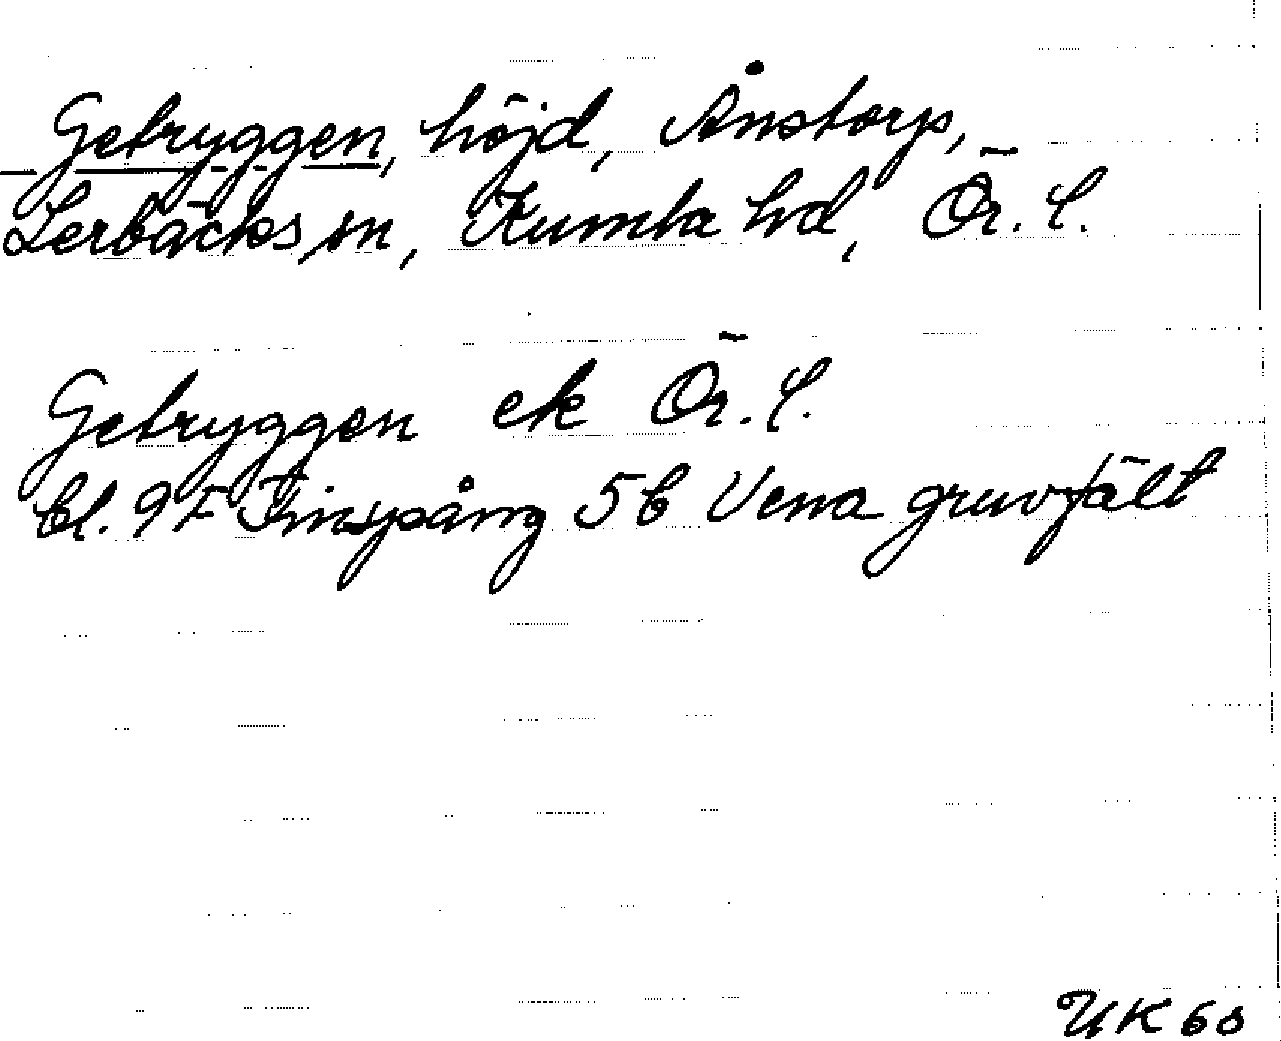 Getryggen, höjd, Ånstorp,
Lerbäcks sn, Kumla hd, Ör. l.
Getryggen ek Ör. l.
bl. 9F Finspång 5b Vena gruvfält
UK 60